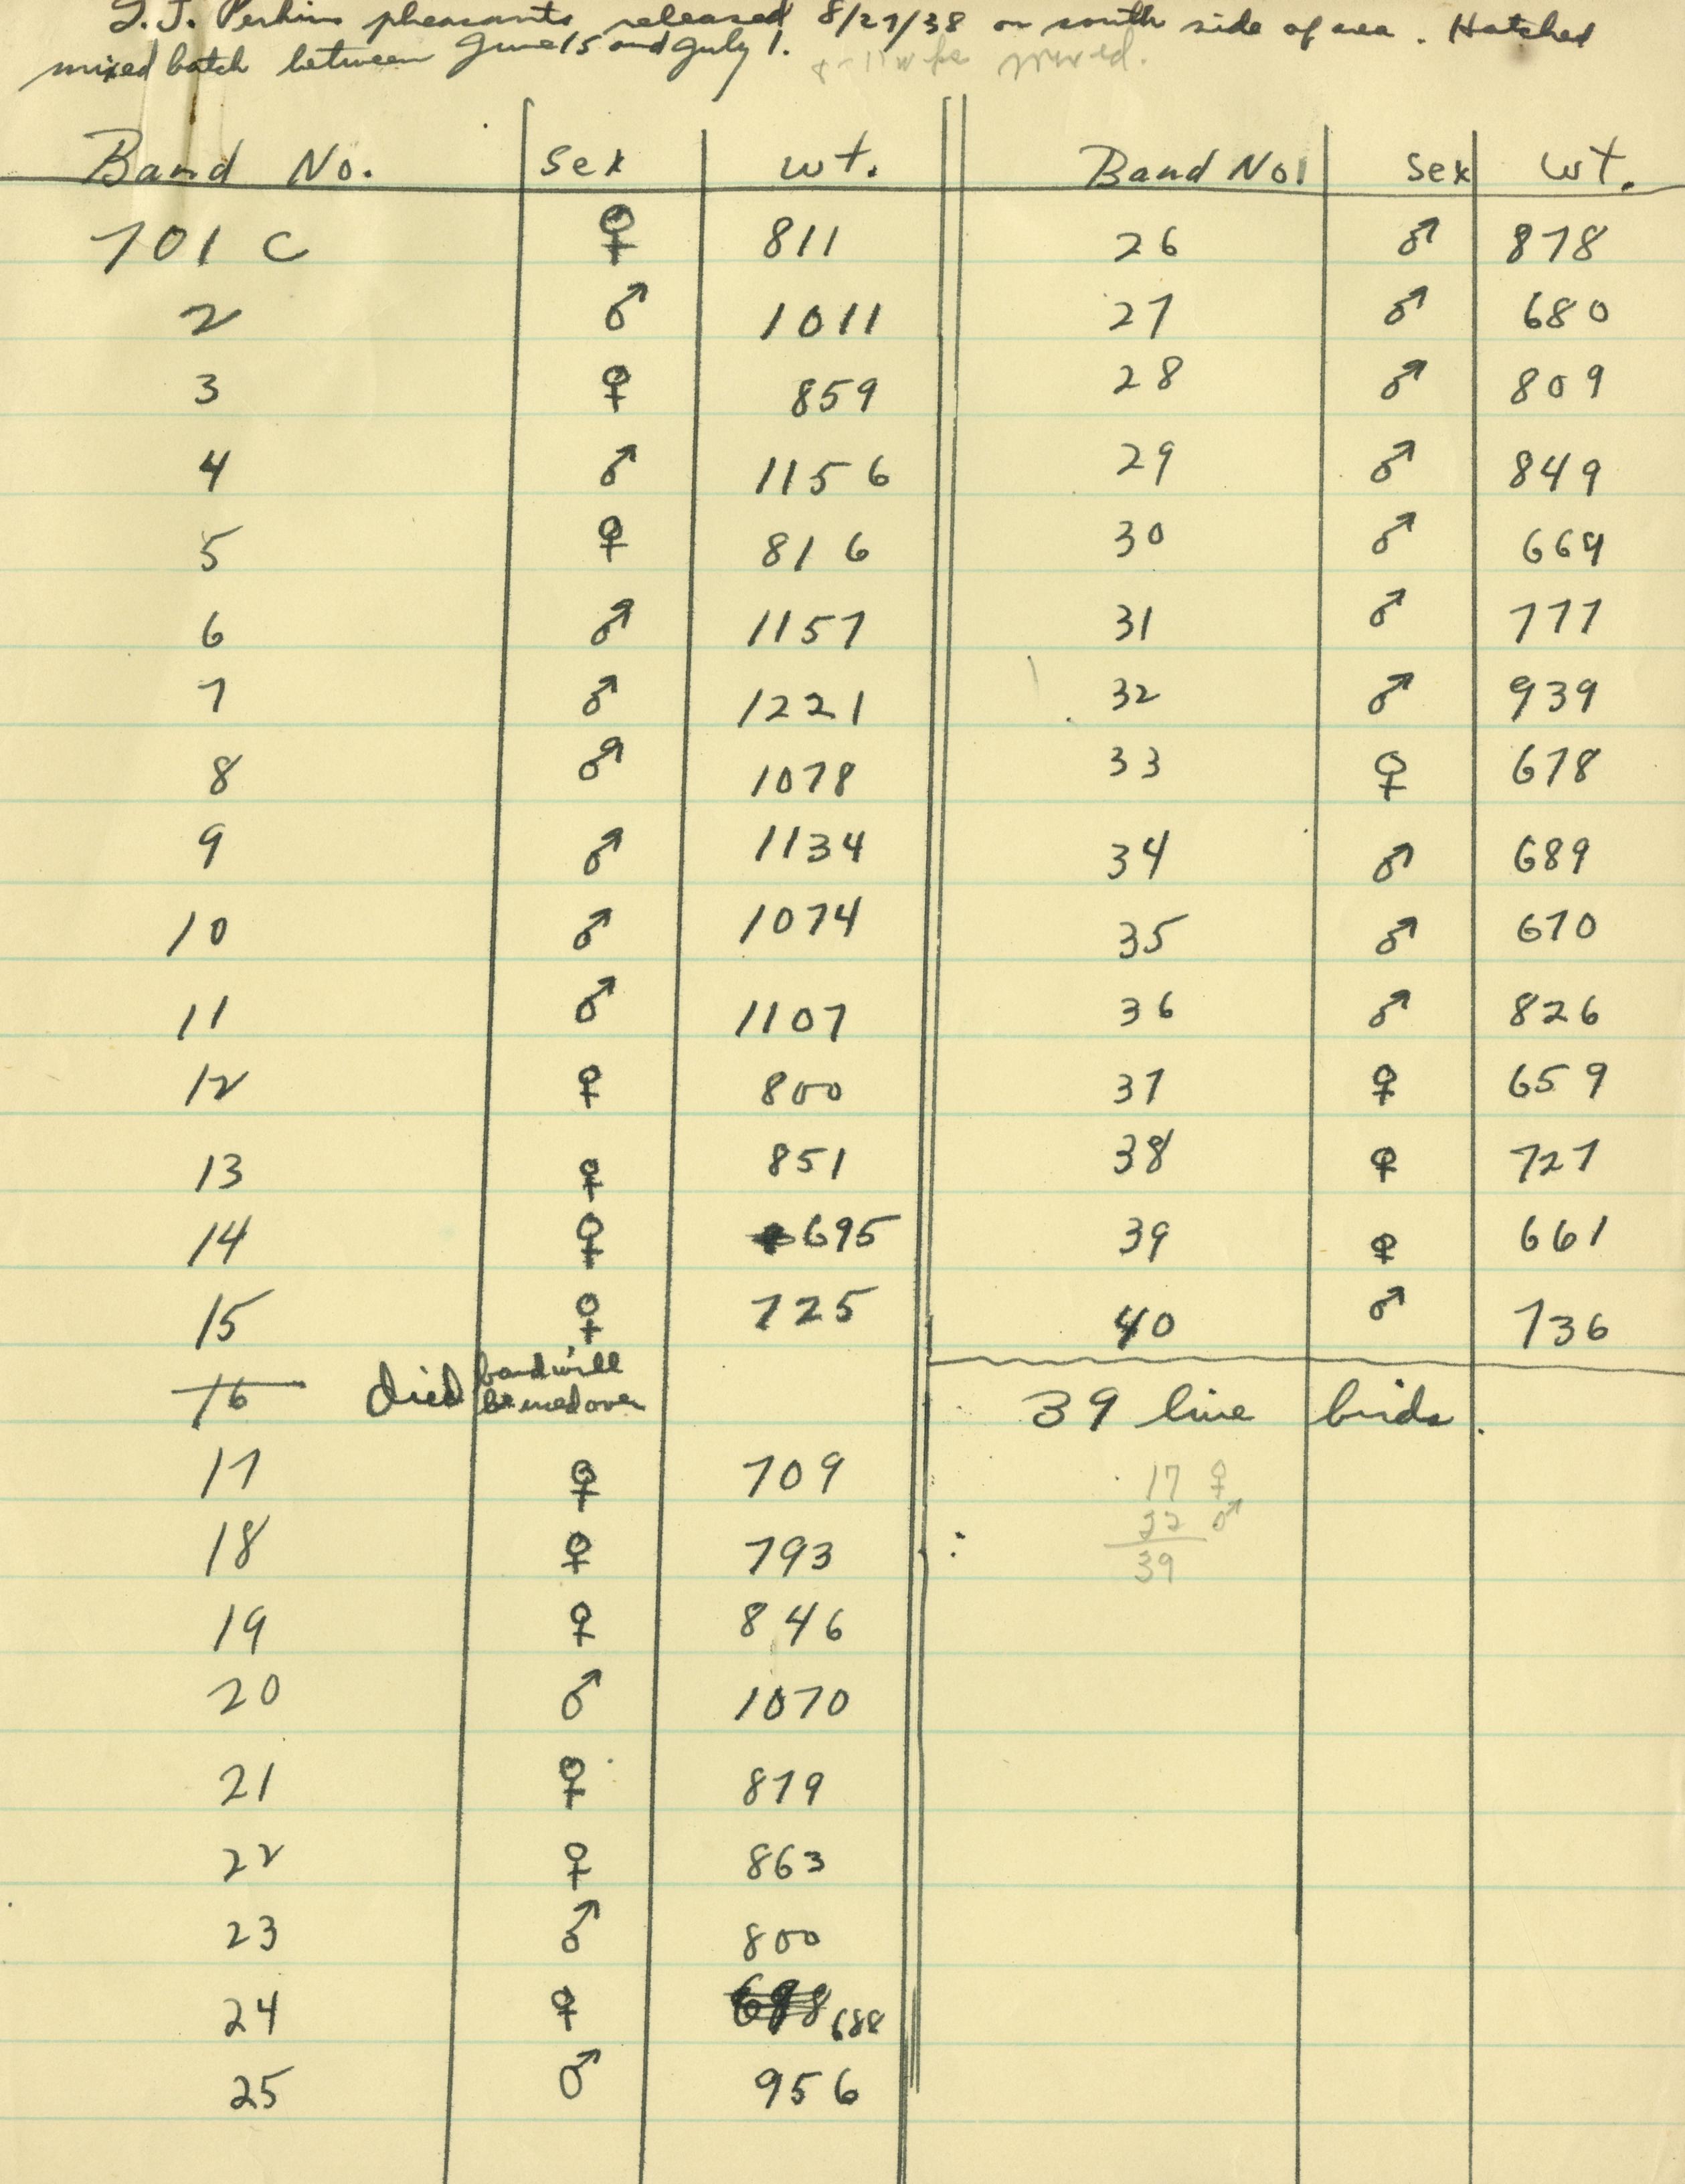 T. J. Perkins pheasants released 8/27/38 on south side of area. Hatched
mixed batch between June 15 and July 1. 8-11 wks mixed.
Band No. Sex wt. Band No. Sex wt.
701 C ♀ 811 26 ♂ 878
2 ♂ 1011 27 ♂ 680
3 ♀ 859 28 ♂ 809
4 ♂ 1156 29 ♂ 849
5 ♀ 816 30 ♂ 669
6 ♂ 1157 31 ♂ 777
7 ♂ 1221 32 ♂ 939
8 ♂ 1078 33 ♀ 678
9 ♂ 1134 34 ♂ 689
10 ♂ 1074 35 ♂ 670
11 ♂ 1107 36 ♂ 826
12 ♀ 800 37 ♀ 659
13 ♀ 851 38 ♀ 727
14 ♀ 695 39 ♀ 661
15 ♀ 725 40 ♂ 736
16 died band will be used over 39 live birds.
17 ♀ 709 17 ♀
18 ♀ 793 22 ♂
39
19 ♀ 846
20 ♂ 1070
21 ♀ 879
22 ♀ 863
23 ♂ 800
24 ♀ 688
25 ♂ 956